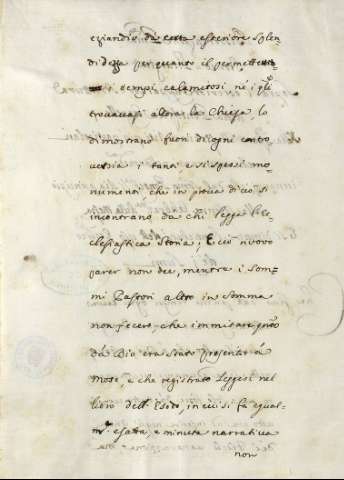 eziandio da certa esteriore splen
didezza per quanto il permette
i tempi calamitosi ne i qli
trovavasi allora la Chiesa lo
dimostrano fuori di ogni contro
versia i tanti, e sì spessi mo
numenti che in prova di ciò si
incontrano da chi legge l'ec
clesiastica storia. E ciò nuovo
parer non dee, mentre i som
mi Pastori altro in somma
non fecero, che immitare quto
da Dio era stato
Mosè, e che registrato leggesi nel
libro dell' Esodo, in cui si fa egual
mte esatta, e minuta narrativa
non